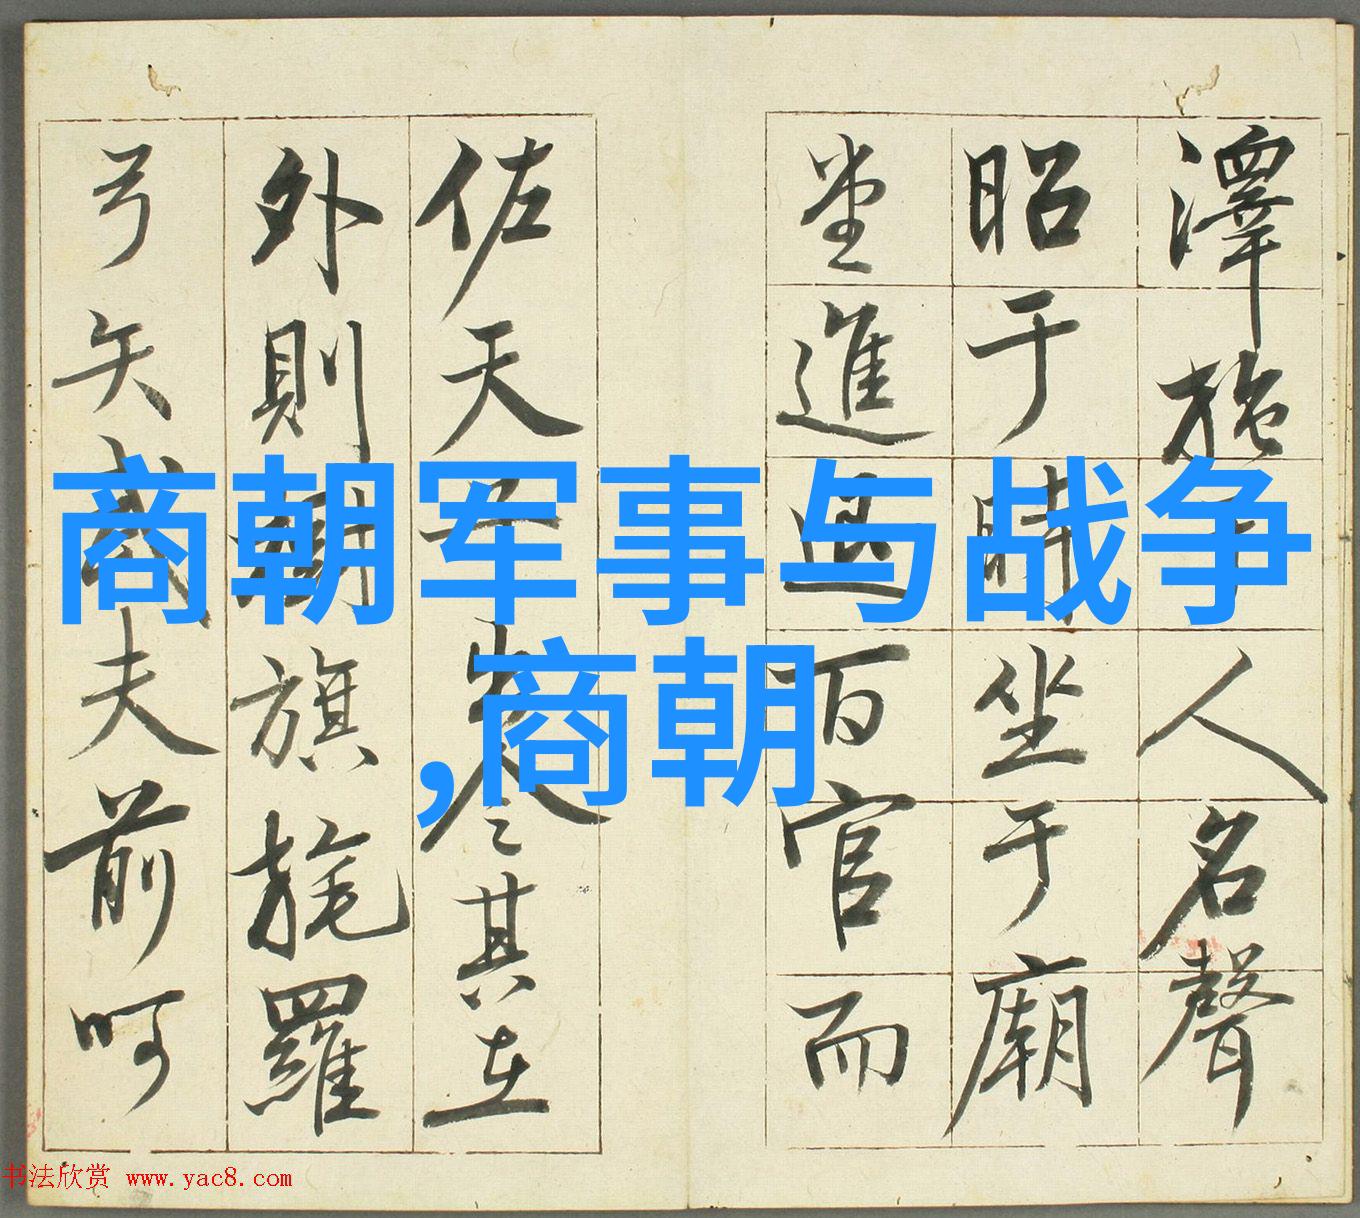 商朝军事与战争
,商朝
澤施于人名聲
昭于時坐于廟
堂進退百官而
佐天子出令其在
外則樹旗旄羅
弓矢武夫前呵
书法欣赏 www.yac8.com